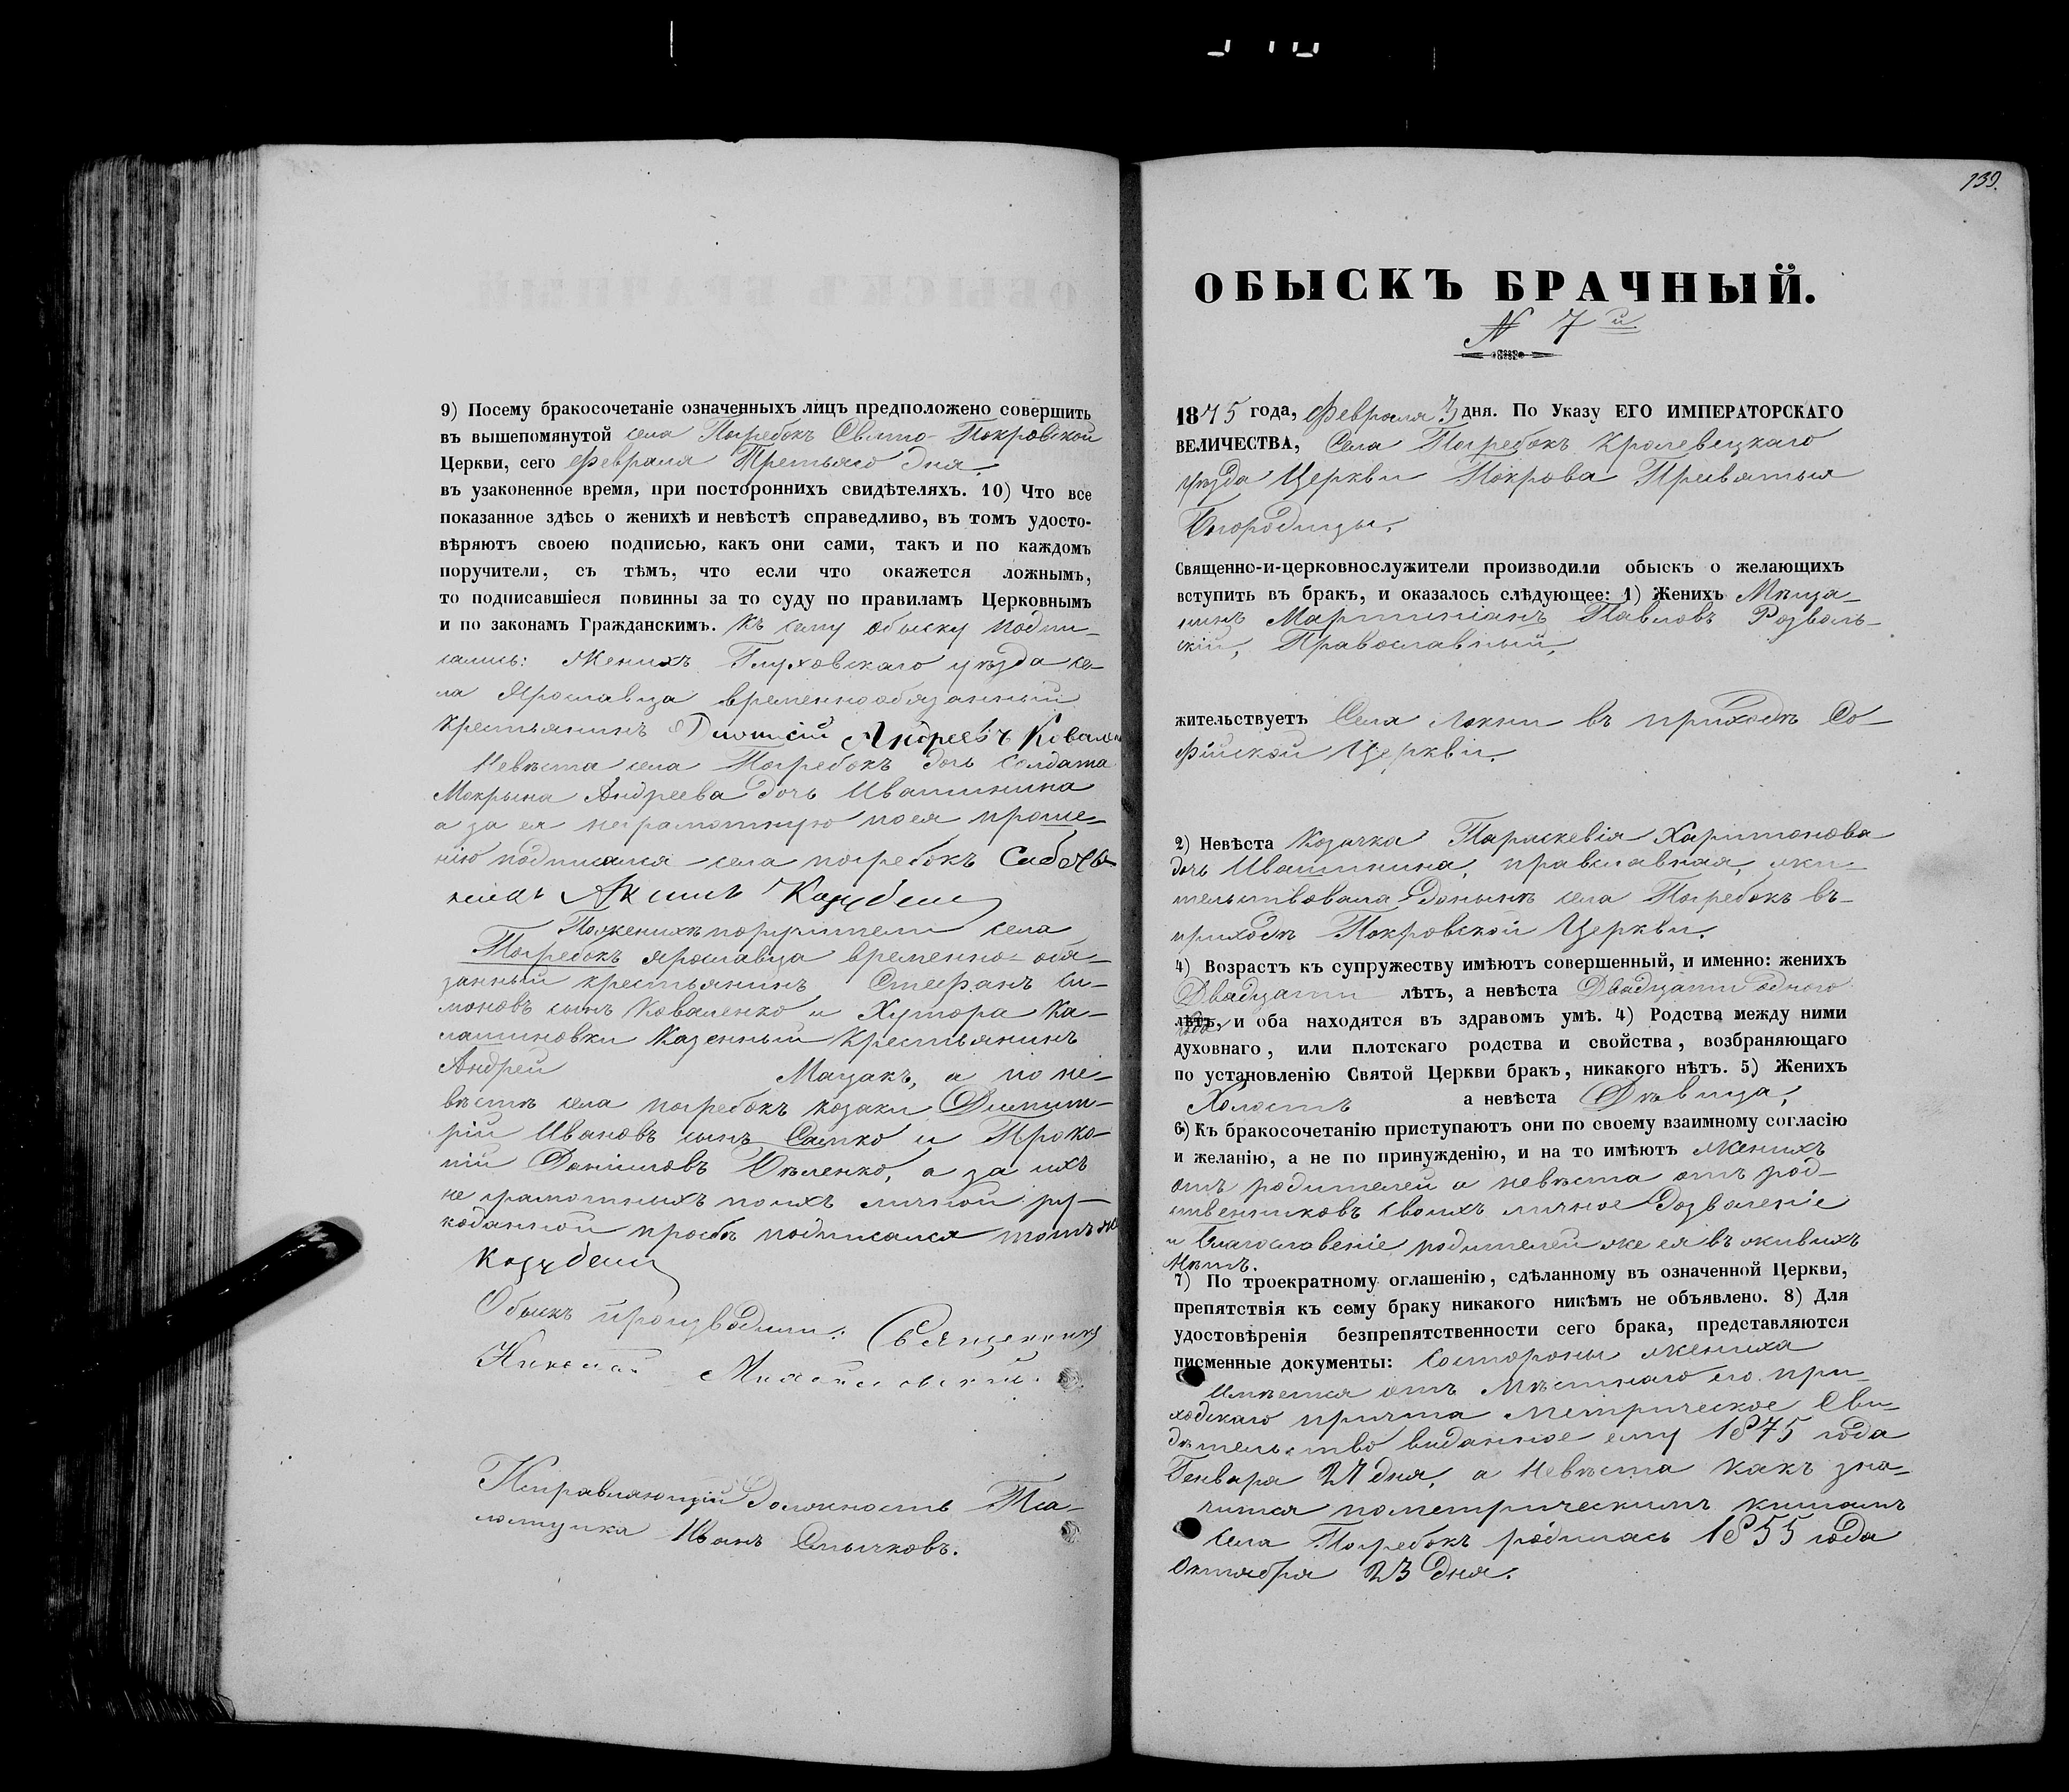 9) Посему бракосочетаніе означенныхъ лицъ предположено совершить
въ вышепомянутой села Погребокъ Свято-Покровской
Церкви, сего Февраля Третьяго дня.
въ узаконенное время, при постороннихъ свидѣтеляхъ. 10) Что все
показанное здѣсь о женихѣ и невѣстѣ справедливо, въ томъ удосто-
вѣряютъ своею подписью, какъ они сами, такъ и по каждомъ
поручители, съ тѣмъ, что если что окажется ложнымъ,
то подписавшіеся повинны за то суду по правиламъ Церковнымъ
и по законамъ Гражданскимъ. Къ сему обыску подпи-
сались: Женихъ Глуховскаго уѣзда се-
ла Ярославца временнообязанный
крестьянинъ Діонисій Андреевъ
Невѣста села Погребокъ дочь Солдата
Мокрына Андреева дочь Ивашинина
а за ея неграмотную по ея проше-
нію подписался села погребокъ
Козубенко
По женихѣ поручители села
Погребокъ ярославца временно-обя-
занный крестьянинъ Стефанъ Си-
моновъ сынъ Коваленко и Хутора Ка-
лашиновки Казенный Крестьянинъ
Андрей Мацакъ, а по не-
вѣстѣ села погребокъ козаки Димит-
рій Ивановъ сынъ и Проко-
пій Даніиловъ а за ихъ
не грамотныхъ по ихъ личной ру-
коданной прозьбѣ подписался тотъ же
Козубенко
Обыскъ производили: Священникъ
Николай
Исправляющій Должность Пса-
ломщика Иванъ Смычковъ.
139.
ОБЫСКЪ БРАЧНЫЙ.
N 7й
1875 года, Февраля 3 дня. По Указу ЕГО ИМПЕРАТОРСКАГО
ВЕЛИЧЕСТВА, Села Погребокъ Кролевецкаго
уѣзда Церкви Покрова Пресвятыя
Богородицы.
Священно-и-церковнослужители производили обыскъ о желающихъ
вступить въ бракъ, и оказалось слѣдующее: 1) Женихъ Мѣща-
нинъ Мартиніанъ Павловъ Розволь-
скій, Православный,
жительствуетъ Села Локни въ приходѣ Со-
фійской Церкви.
2) Невѣста Козачка Параскевія Харитонова
дочь Ивашинина, православная, жи-
тельствовала Донынѣ села Погребокъ въ-
приходѣ Покровской Церкви.
4) Возрастъ къ супружеству имѣютъ совершенный, и именно: женихъ
Двадцати лѣтъ, а невѣста Двадцати одного
лѣтъ, года и оба находятся въ здравомъ умѣ. 4) Родства между ними
духовнаго, или плотскаго родства и свойства, возбраняющаго
по установленію Святой Церкви бракъ, никакого нѣтъ. 5) Женихъ
Холостъ а невѣста Дѣвица,
6) Къ бракосочетанію приступаютъ они по своему взаимному согласію
и желанію, а не по принужденію, и на то имѣютъ Женихъ
отъ родителей а невѣста отъ род-
ственниковъ своихъ личное Дозволеніе
и Благословеніе родителей же ея въ живыхъ
Нѣтъ.
7) По троекратному оглашенію, сдѣланному въ означенной Церкви,
препятствія къ сему браку никакого никѣмъ не объявлено. 8) Для
удостовѣренія безпрепятственности сего брака, представляются
писменные документы: Состороны Жениха
Имѣется отъ Мѣстнаго его при-
ходскаго причта Метрическое Сви-
дѣтельство виданное ему 1875 года
Генваря 27 дня, а Невѣста какъ зна-
чится пометрическимъ книгамъ
Села Погребокъ родилась 1855 года
Октября 23 Дня.